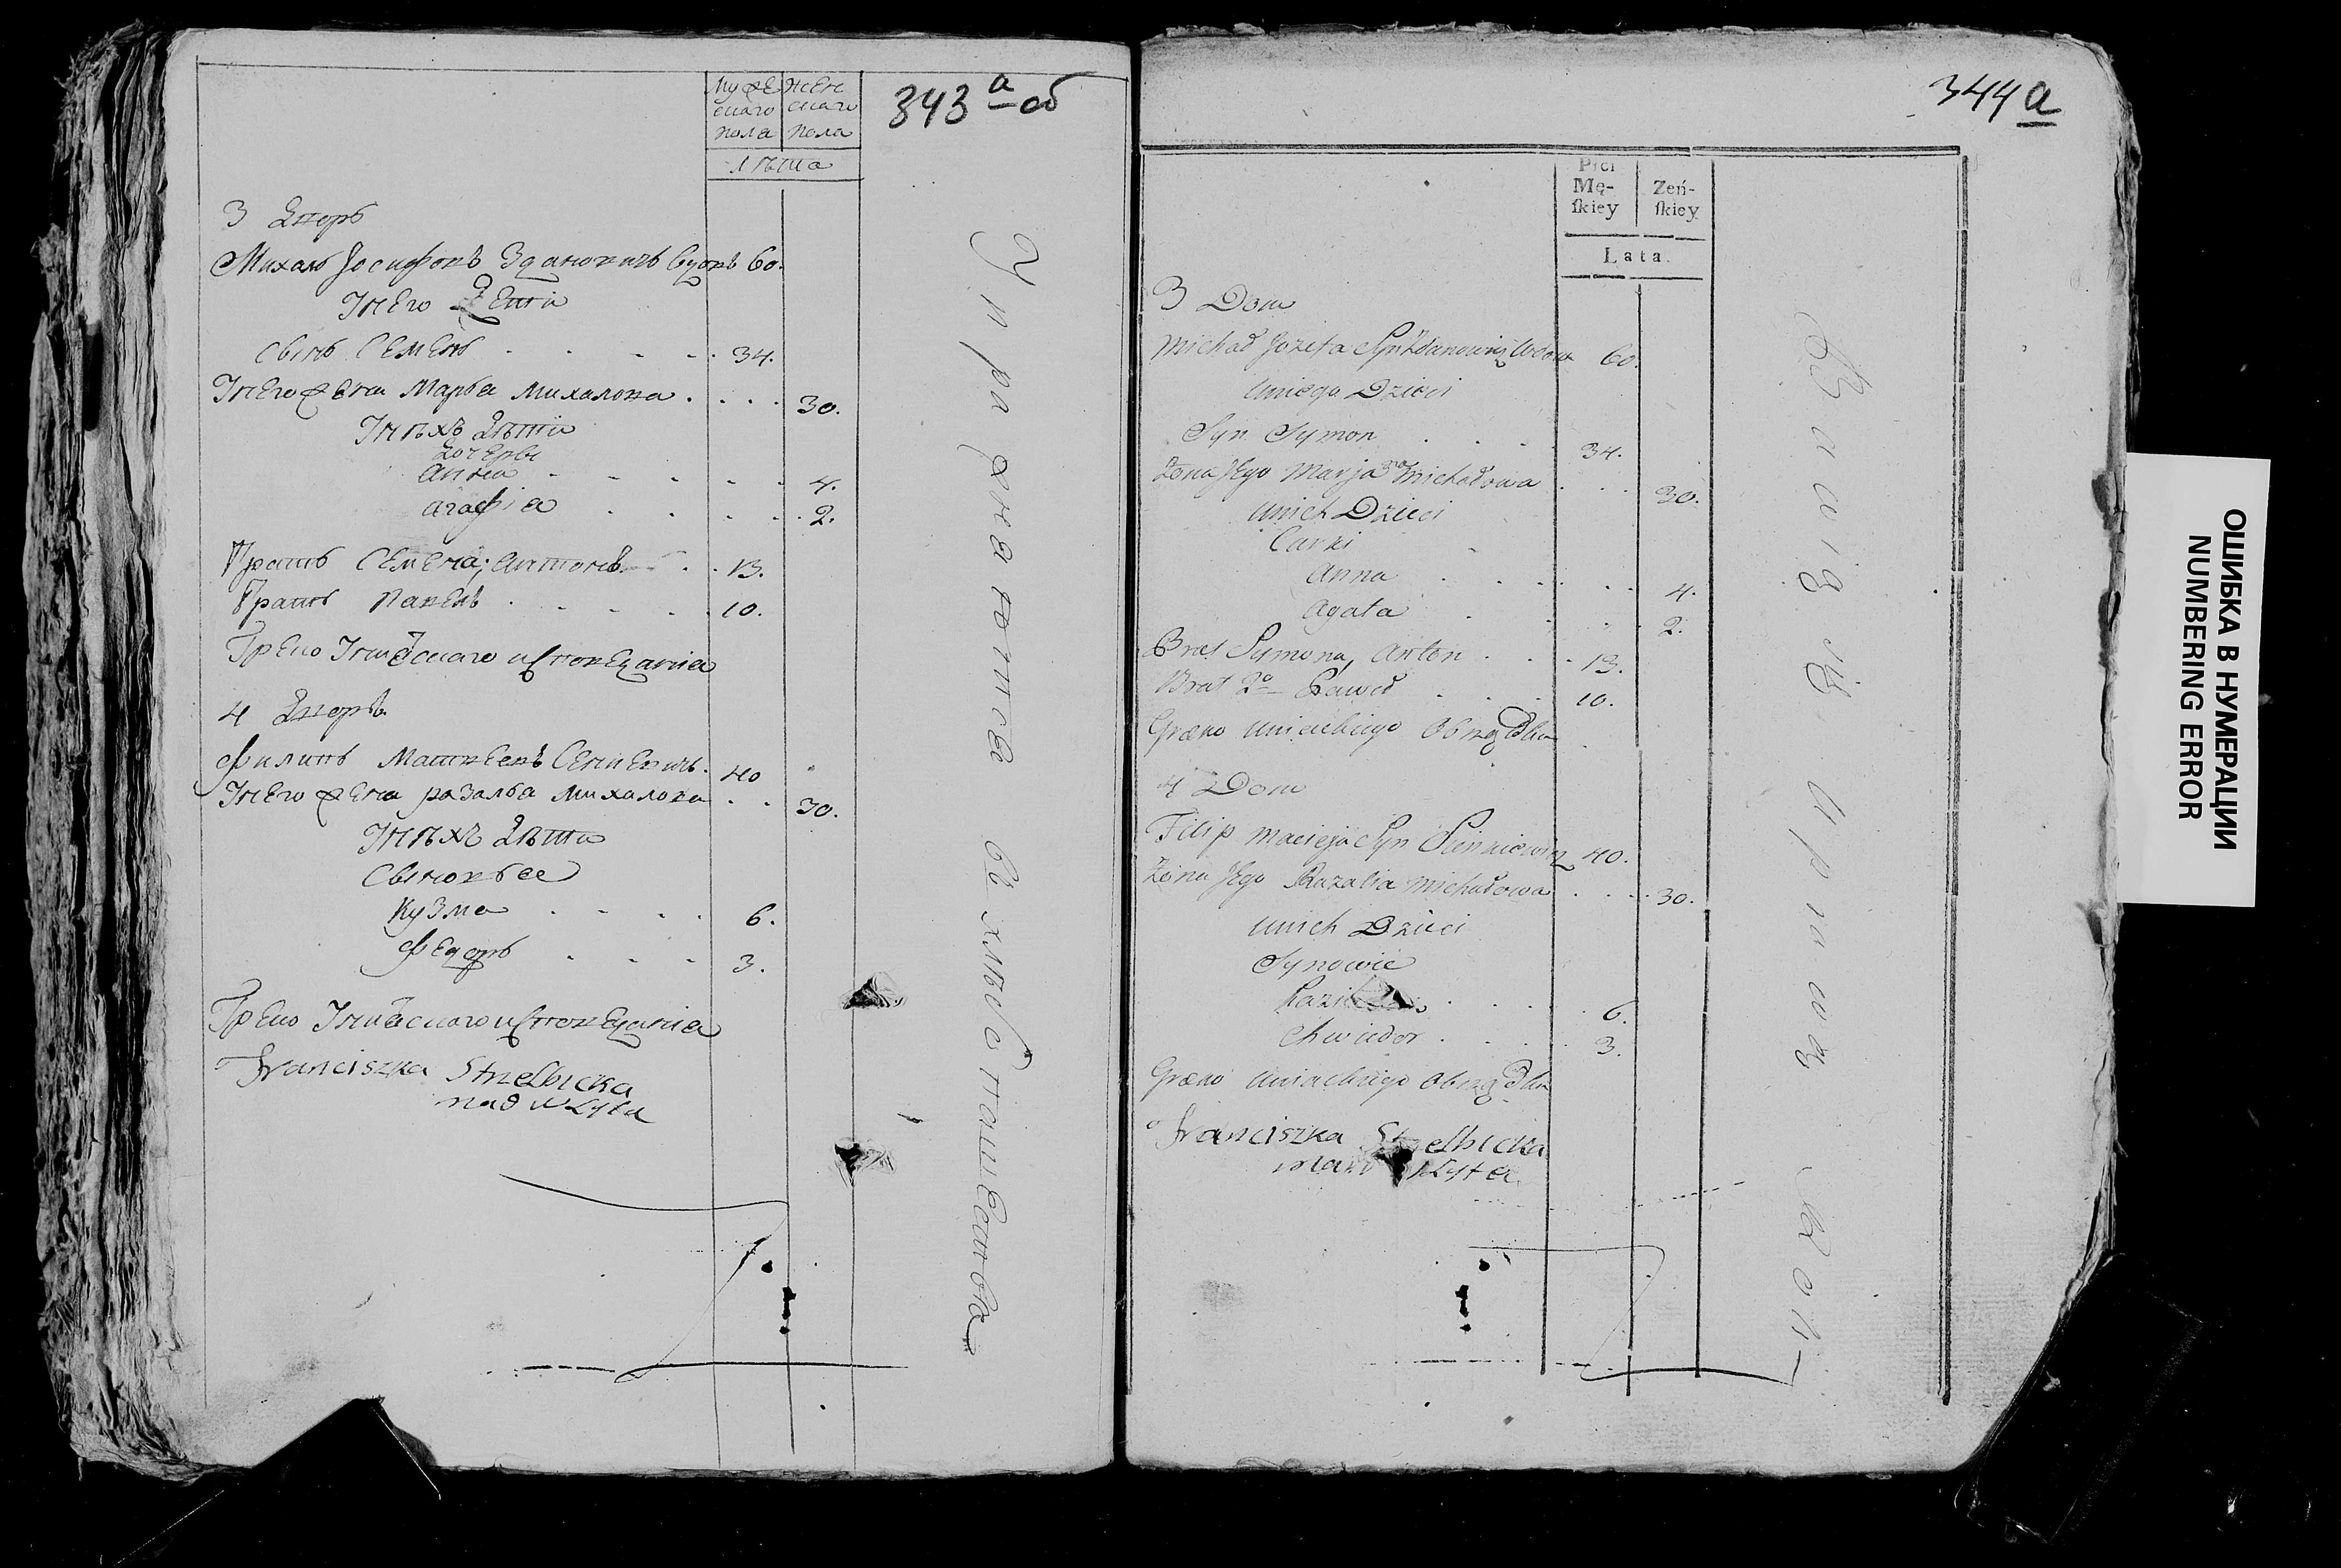 343 а-об
Мужескаго пола
Женскаго пола
Лѣта
3 Дворъ
Михалъ Іосифовъ Здановичъ вдовъ 60.
У него Дети
Сынъ Семенъ 34.
У него жена Марья Михалова 30.
У нихъ Дѣти
Дочерьи
Анна 4.
Агафіа 2.
Братъ Семена, Антонъ 13.
Братъ Павелъ 10.
Греко Унитскаго исповеданіа
4 Дворъ
Филипъ Матвеевъ Сенкевичъ 40
У него жена розалья Михалова 30.
У нихъ Дѣти
Сыновьее
Кузма 6.
Федоръ 3.
Греко Унитскаго исповеданіа
Franciszka Strzelbicka
Упражняются въ хлѣбопашествѣ
344 а
Płci
Mę-
ſkiey
Zeń-
ſkiey
Lata.
3 Dom
Michał Jozefa Syn Zdanowicz Wdow 60.
Uniego Dzieci
Syn Symon 34.
Żona Jego Marja Michałowa 30.
Unich Dzieci
Curki
Anna 4.
Agata 2.
Brat Symona, Anton 13.
Brat 2o Paweł 10.
Greko Uniackiego Obrządku
4 Dom
Filip Macieja Syn Sienkiewicz 40.
Żona Jego Razalia Michałowa 30.
Unich Dzieci
Synowie
6.
Chwiedor 3.
Greko Uniackiego Obrządku
Franciszka Strzelbicka
Bawią się Uprawą Roli
ОШИБКА В НУМЕРАЦИИ
NUMBERING ERROR